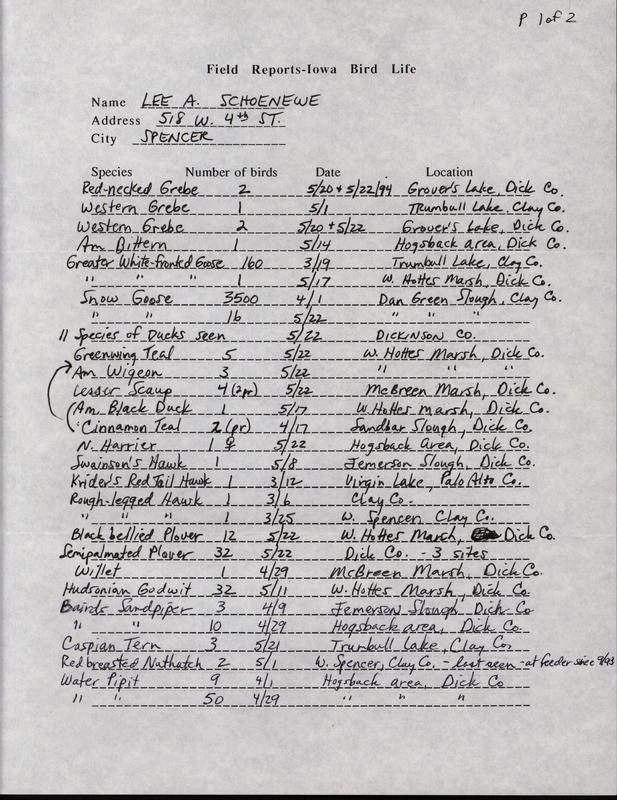 P 1 of 2
Field Reports-Iowa Bird Life
Name LEE A. SCHOENEWE
Address 518 W. 4th ST.
City SPENCER
Species Number of birds Date Location
Red-necked Grebe 2 5/20 + 5/22/94 Grover's Lake, Dick Co.
Western Grebe 1 5/1 Trumbull Lake, Clay Co.
Western Grebe 2 5/20 + 5/22 Grover's Lake, Dick Co.
Am Bittern 1 5/14 Hogsback area, Dick Co.
Greater White-fronted Goose 160 3/19 Trumbull Lake, Clay Co.
" " " 1 5/17 W. Hottes Marsh, Dick Co.
Snow Goose 3500 4/1 Dan Green Slough, Clay Co.
" " 16 5/22 " " "
11 Species of Ducks seen 5/22 DICKINSON CO.
Greenwing Teal 5 5/22 W. Hottes Marsh, Dick Co.
Am Wigeon 3 5/22 " " "
Lesser Scaup 4 (2pr) 5/22 McBreen Marsh, Dick Co.
Am. Black Duck 1 5/17 W. Hottes marsh, Dick Co.
Cinnamon Teal 2 (pr) 4/17 Sandbar Slough, Dick Co.
N. Harrier 1 ♀ 5/22 Hogsback Area, Dick Co.
Swainson's Hawk 1 5/8 Jemerson Slough, Dick Co.
Krider's Red Tail Hawk 1 3/12 Virgin Lake, Palo Alto Co.
Rough-legged Hawk 1 3/6 Clay Co.
" " " 1 3/25 W. Spencer Clay Co.
Black bellied Plover 12 5/22 W. Hottes Marsh, Dick Co.
Semipalmated Plover 32 5/22 Dick Co. - 3 sites
Willet 1 4/29 McBreen Marsh, Dick Co.
Hudsonian Godwit 32 5/11 W. Hottes Marsh, Dick Co.
Bairds Sandpiper 3 4/9 Jemerson Slough, Dick Co
" " 10 4/29 Hogsback area, Dick Co
Caspian Tern 3 5/21 Trumbull Lake, Clay Co.
Red breasted Nuthatch 2 5/1 W. Spencer, Clay Co. - last seen - at feeder since 9/93
Water Pipit 9 4/1 Hogsback area, Dick Co
" " 50 4/29 " " "